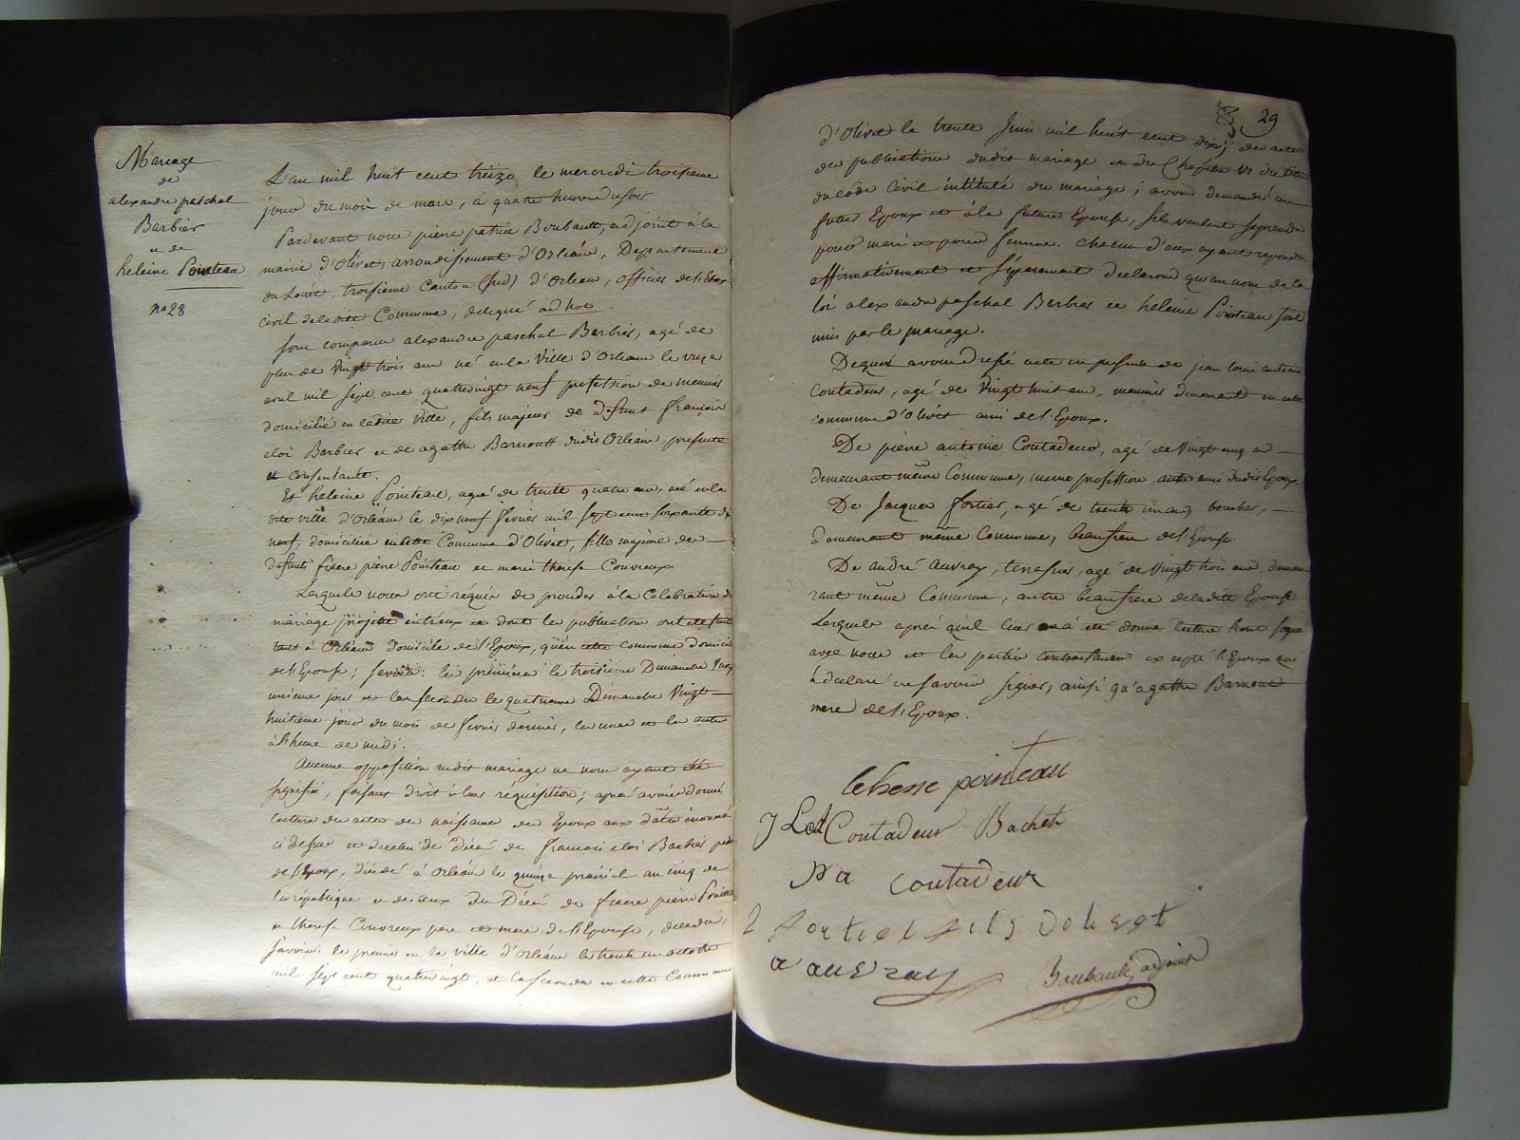 Mariage
de
alexandre paschal
Barbier
et de
heleine Pointeau
no 28
L'an mil huit cent treize le mercredi troisieme
jour du mois de mars, à quatre heures du soir
Pardevant nous pierre patrice Boubault, adjoint à la
mairie d'Olivet, arrondissement d'Orléans, Departement
du Loiret troisieme Canton (Sud) d'Orléans, officier de l'Etat
civil de la dite Commune, delegué ad hoc.
Sont comparus alexandre paschal Barbier, agé de
plus de Vingt trois ans né en la Ville d'Orléans le
avril mil sept cent quatrevingt neuf profession de
domicilié en ladite Ville, fils majeur de defunt françois
eloi Barbier et de agathe dudit Orléans, presente
et consentante.
Et heleine Pointeau, agée de trente quatre ans, née en la
dite ville d'Orléans le dix neuf février mil sept cent soixante dix
neuf, domiciliée en cette Commune d'Olivet, fille majeure de
defunts fiacre pierre Pointeau et marie therese
Lesquels nous ont requis de proceder à la Celebration du
mariage projetté entreux et dont les publications ont été faites
tant à Orléans domicile de l'Epoux, qu'en cette commune domicile
de l'Epouse; savoir: les premieres le troisieme Dimanche Vingt
unieme jour et les secondes le quatrieme Dimanche Vingt
huitieme jour du mois de fevrier dernier, les unes et les autres
à l'heure de midi.
Aucune opposition audit mariage ne nous ayant été
signifiée, faisant droit à leur réquisition; après avoir donné
lecture des actes de naissance des Epoux aux dattes énoncées
ci dessus et de celui de Décès de francois eloi Barbier père
de l'Epoux, décédé à Orléans le quinze prairial an cinq de
la république et de ceux du Décès de fiacre pierre Pointeau
et therese père et mere de l'Epouse, décédés,
Savoir: le premier en la ville d'Orléans le trente un octobre
mil sept cent quatrevingt, et la seconde en cette Commune
29
d'Olivet le trente Juin mil huit cent dix; des actes
de publications dudit mariage et du Chapitre VI du titre
du Code Civil intitulé du mariage; avons demandé au
futur Epoux et à la future Epouse, s'ils veulent se prendre
pour mari et pour femme. chacun d'eux ayant repondu
affirmativement et séparément declarons qu'au nom de la
loi alexandre paschal Barbier et heleine Pointeau sont
unis par le mariage.
Dequoi avons dressé acte en presence de jean louis antoine
Coutadeur, agé de Vingt huit ans, demeurant en cette
commune d'Olivet ami de l'Epoux.
De pierre antoine Coutadeur, agé de Vingt cinq ans
demeurant même Commune, meme profession autre ami dudit Epoux
De Jacques fortier, agé de trente cinq ans,
demeurant même Commune, beaufrere de l'Epouse
De andré auvray, agé de Vingt trois ans demeu-
rant même Commune, autre beaufrere de ladite Epouse
Lesquels après qu'il leur a été donné lecture l'ont signé
avec nous et les parties contractantes excepté l'Epoux qui
a declaré ne savoir signer, ainsi qu'agathe
mere de l'Epoux.
pointeau
J L Coutadeur Bachet
P a Coutadeur
J fortier fils Dolivet
a auvray
Boubault, adjoint